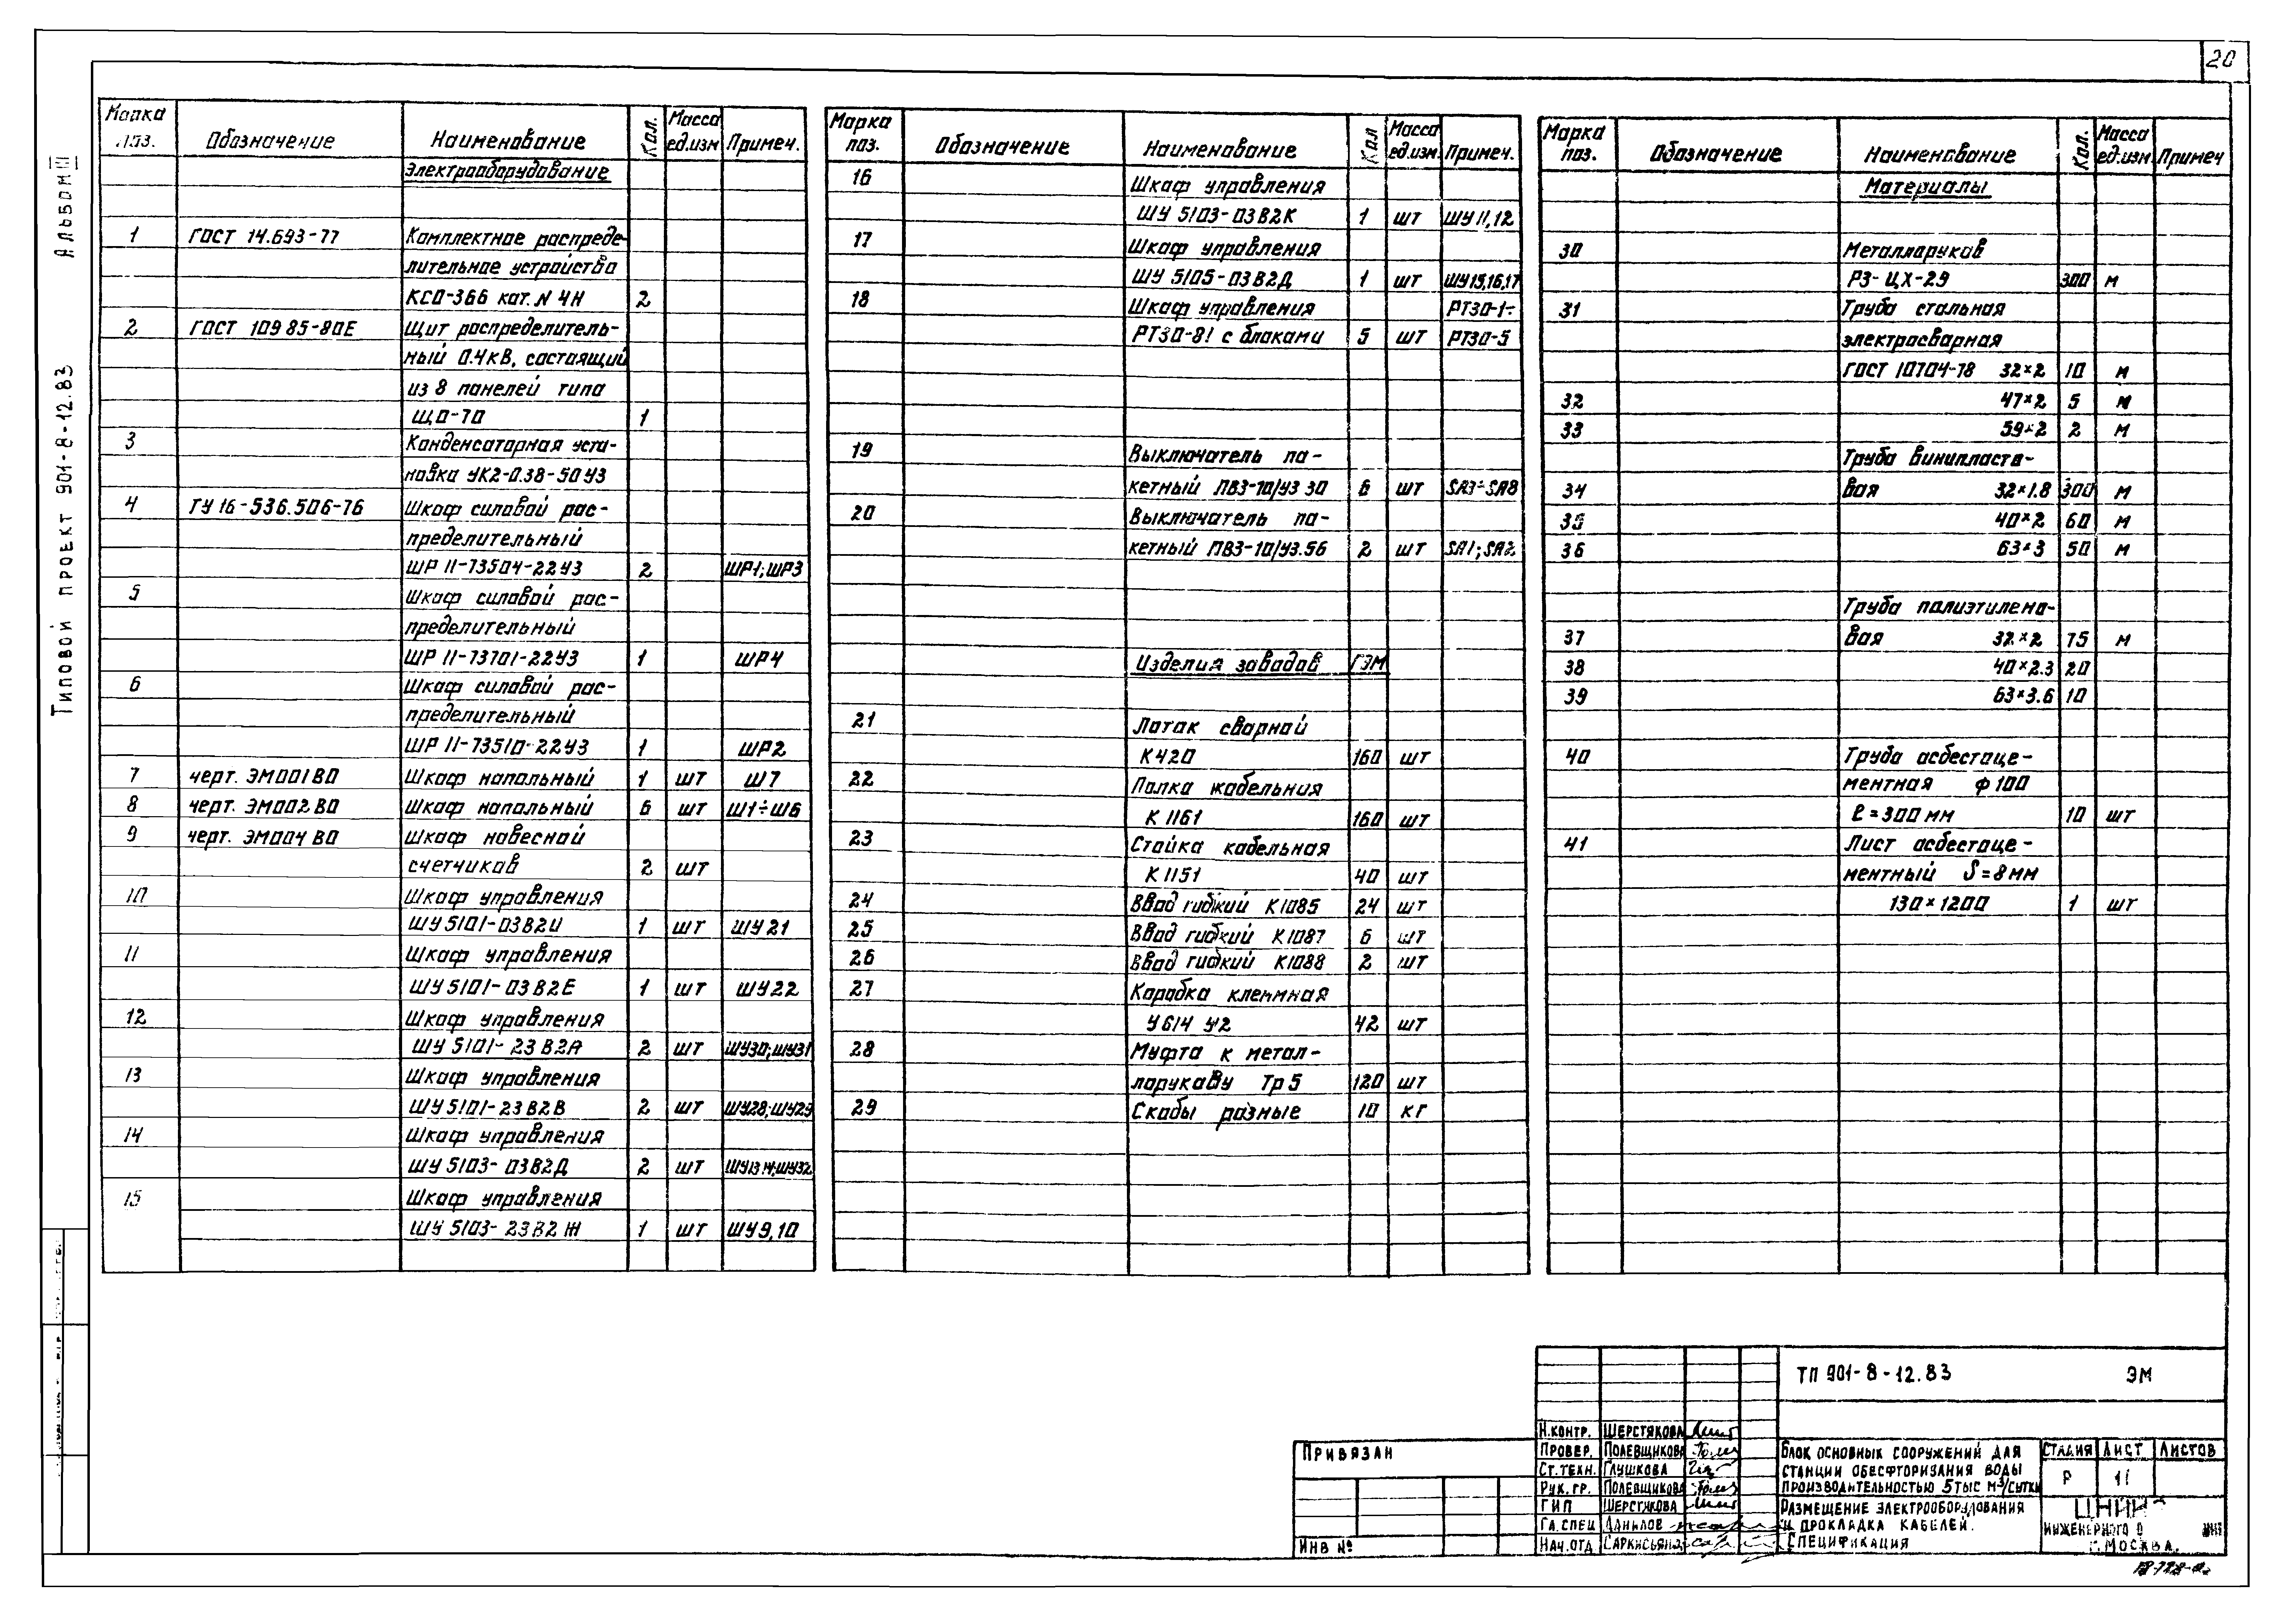 20
Альбом III
Типовой проект 901-8-12.83
Марка поз. Обозначение Наименование Кол. Масса ед.изм Примеч.
Электрооборудование
1 ГОСТ 14.693-77 Комплектное распреде-
лительное устройства
КСО-366 кат. N 4Н 2
2 ГОСТ 10985-80Е Щит распределитель-
ный 0.4кВ, состоящий
из 8 панелей типа
ЩО-70 1
3 Конденсаторная уста-
новка УК2-0.38-50У3
4 ТУ 16-536.506-76 Шкаф силовой рас-
пределительный
ШР 11-73504-22У3 2 ШР1; ШР3
5 Шкаф силовой рас-
пределительный
ШР 11-73701-22У3 1 ШР4
6 Шкаф силовой рас-
пределительный
ШР 11-73510-22У3 1 ШР2
7 черт. ЭМ001В0 Шкаф напольный 1 шт Ш7
8 черт. ЭМ002В0 Шкаф напольный 6 шт Ш1÷Ш6
9 черт. ЭМ004В0 Шкаф навесной
счетчиков 2 шт
10 Шкаф управления
ШУ 5101-03В2И 1 шт ШУ21
11 Шкаф управления
ШУ 5101-03В2Е 1 шт ШУ22
12 Шкаф управления
ШУ 5101-23В2А 2 шт ШУ30; ШУ31
13 Шкаф управления
ШУ 5101-23В2В 2 шт ШУ28; ШУ29
14 Шкаф управления
ШУ 5103-03В2Д 2 шт
15 Шкаф управления
ШУ 5103-23В2Ж 1 шт ШУ9,10
Марка поз. Обозначение Наименование Кол Масса ед.изм. Примеч.
16 Шкаф управления
ШУ 5103-03В2К 1 шт ШУ11,12
17 Шкаф управления
ШУ 5105-03В2Д 1 шт ШУ15,16,17
18 Шкаф управления РТ30-1÷
РТ30-81 с блоками 5 шт РТ30-5
19 Выключатель па-
кетный ПВ3-10/У3 30 6 шт SA3÷SA8
20 Выключатель па-
кетный ПВ3-10/У3.56 2 шт SA1; SA2
Изделия заводов ГЭМ
21 Лоток сварной
К420 160 шт
22 Полка кабельния
К 1161 160 шт
23 Стойка кабельная
К 1151 40 шт
24 Ввод гибкий К1085 24 шт
25 Ввод гибкий К1087 6 шт
26 Ввод гибкий К1088 2 шт
27 Коробка клеммная
У614 У2 42 шт
28 Муфта к метал-
лорукаву Тр 5 120 шт
29 Скобы разные 10 кг
Марка поз. Обозначение Наименование Кол. Масса ед.изм. Примеч
Материалы
30 Металлорукав
РЗ-Ц,Х-29 300 м
31 Труба стальная
электросварная
ГОСТ 10704-78 32×2 10 м
32 47×2 5 м
33 59×2 2 м
Труба винипласто-
34 вая 32×1.8 300 м
35 40×2 60 м
36 63×3 50 м
Труба полиэтилено-
37 вая 32×2 75 м
38 40×2.3 20
39 63×3.6 10
40 Труба асбестоце-
ментная ф 100
ℓ=300 мм 10 шт
41 Лист асбестоце-
ментный S=8мм
130×1200 1 шт
ТП 901-8-12.83 ЭМ
Привязан
Инв №
Н.контр. Шерстякова
Провер. Полевщикова
Ст.техн. Глушкова
Рук.гр. Полевщикова
ГИП Шерстякова
Гл.спец Данилов
Нач.отд Саркисьянц
Блок основных сооружений для
станции обесфторизания воды
производительностью 5 тыс м³/сутки
Стадия Лист Листов
Р 11
Размещение электрооборудования
и прокладка кабелей.
Спецификация
ЦНИИЭ
инженерного о
г. Москва.